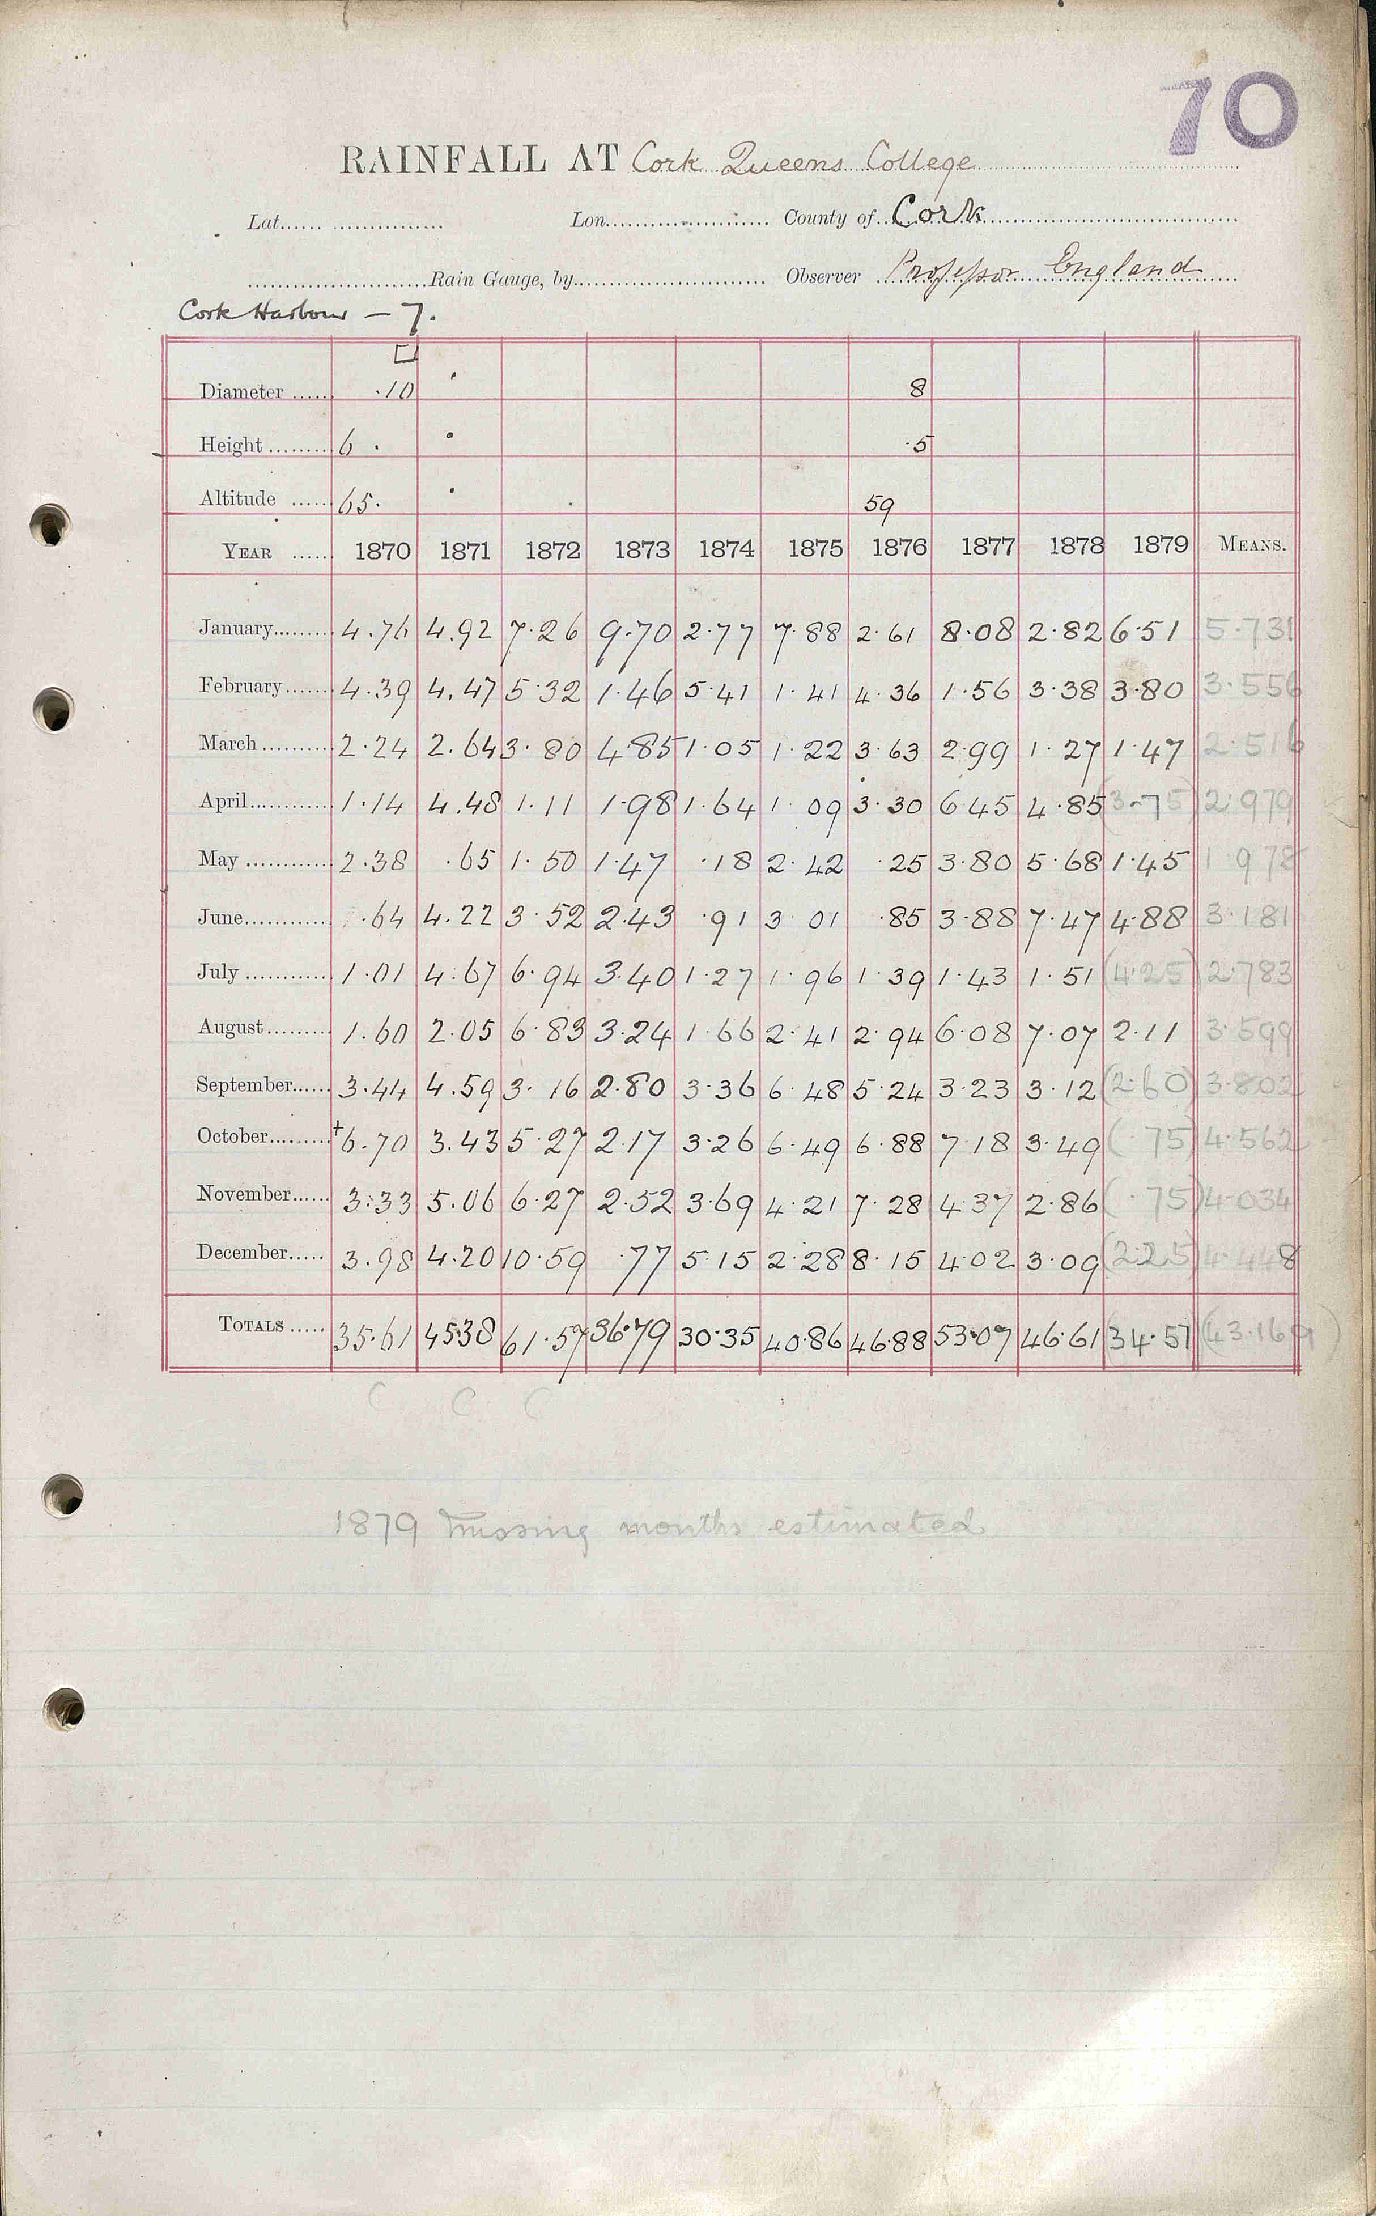 70
RAINFALL AT Cork Queens College
Lat. Lon. County of Cork
Rain Gauge, by Observer Professor England
Cork Harbour — 7.
Diameter ·10 8
Height 6 · ·5
Altitude 65· 59
YEAR 1870 1871 1872 1873 1874 1875 1876 1877 1878 1879 MEANS.
January 4.76 4.92 7.26 9.70 2.77 7.88 2.61 8.08 2.82 6.51 5.731
February 4.39 4.47 5.32 1.46 5.41 1.41 4.36 1.56 3.38 3.80 3.556
March 2.24 2.64 3.80 4.85 1.05 1.22 3.63 2.99 1.27 1.47 2.516
April 1.14 4.48 1.11 1.98 1.64 1.09 3.30 6.45 4.85 (3.75) 2.979
May 2.38 .65 1.50 1.47 .18 2.42 .25 3.80 5.68 1.45 1.978
June .64 4.22 3.52 2.43 .91 3.01 .85 3.88 7.47 4.88 3.181
July 1.01 4.67 6.94 3.40 1.27 1.96 1.39 1.43 1.51 (4.25) 2.783
August 1.60 2.05 6.83 3.24 1.66 2.41 2.94 6.08 7.07 2.11 3.599
September 3.44 4.59 3.16 2.80 3.36 6.48 5.24 3.23 3.12 (2.60) 3.802
October +6.70 3.43 5.27 2.17 3.26 6.49 6.88 7.18 3.49 (.75) 4.562
November 3.33 5.06 6.27 2.52 3.69 4.21 7.28 4.37 2.86 (.75) 4.034
December 3.98 4.20 10.59 .77 5.15 2.28 8.15 4.02 3.09 (2.25) 4.448
TOTALS 35.61 45.38 61.57 36.79 30.35 40.86 46.88 53.07 46.61 (34.57) (43.169)
C C C
1879 missing months estimated